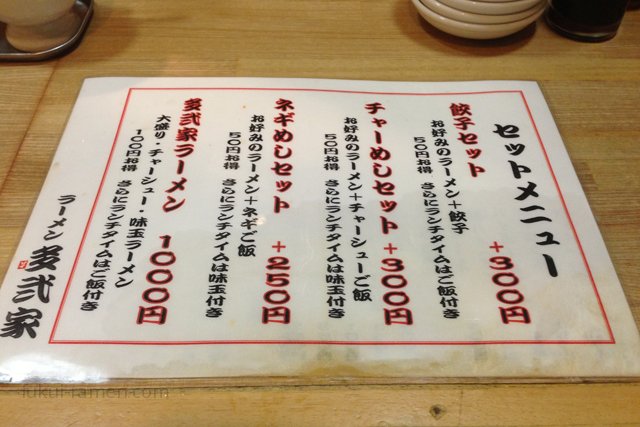 セットメニュー
餃子セット +300円
お好みのラーメン+餃子
50円お得 さらにランチタイムはご飯付き
チャーめしセット+300円
お好みのラーメン+チャーシューご飯
50円お得 さらにランチタイムは味玉付き
ネギめしセット +250円
お好みのラーメン+ネギご飯
50円お得 さらにランチタイムは味玉付き
多弐家ラーメン 1000円
大盛り・チャーシュー・味玉ラーメン
100円お得 さらにランチタイムはご飯付き
ラーメン 多弐家
fukui-ramen.com